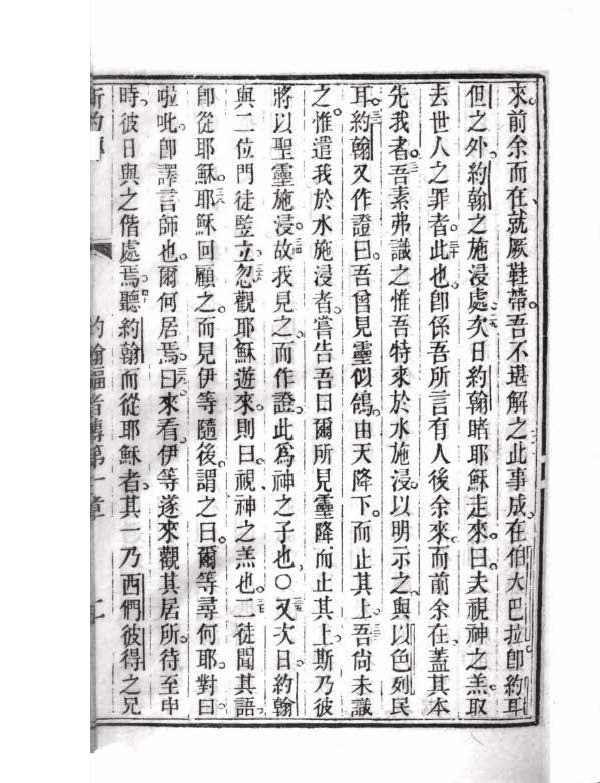 來前余而在就厥鞋帶吾不堪解之此事成在伯大巴拉卽約耳
但之外約翰之施浸處次日約翰睹耶穌走來曰夫視神之羔取
去世人之罪者此也卽係吾所言有人後余來而前余在蓋其本
先我者吾素弗識之惟吾特來於水施浸以明示之與以色列民
耳約翰又作證曰吾曾見靈似鴿由天降下而止其上吾尚未識
之惟遣我於水施浸者嘗告吾曰爾所見靈降而止其上斯乃彼
將以聖靈施浸故我見之而作證此為神之子也○又次日約翰
與二位門徒竪立忽觀耶穌遊來則曰視神之羔也二徒聞其語
卽從耶穌耶穌回顧之而見伊等隨後謂之曰爾等尋何耶對曰
𠵽吡卽譯言師也爾何居焉曰來看伊等遂來觀其居所待至申
時彼日與之偕處焉聽約翰而從耶穌者其一乃西們彼得之兄
約翰福音傳第一章